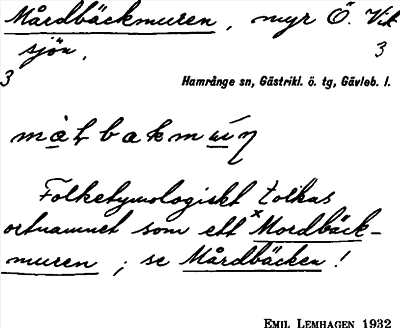 Mårdbäckmuren, myr Ö. Vit
sjön, 3
3
Hamrånge sn, Gästrikl. ö. tg, Gävleb. l.
Folketymologiskt tolkas
ortnamnet som ett ˣMordbäck-
muren; se Mårdbäcken!
EMIL LEMHAGEN 1932